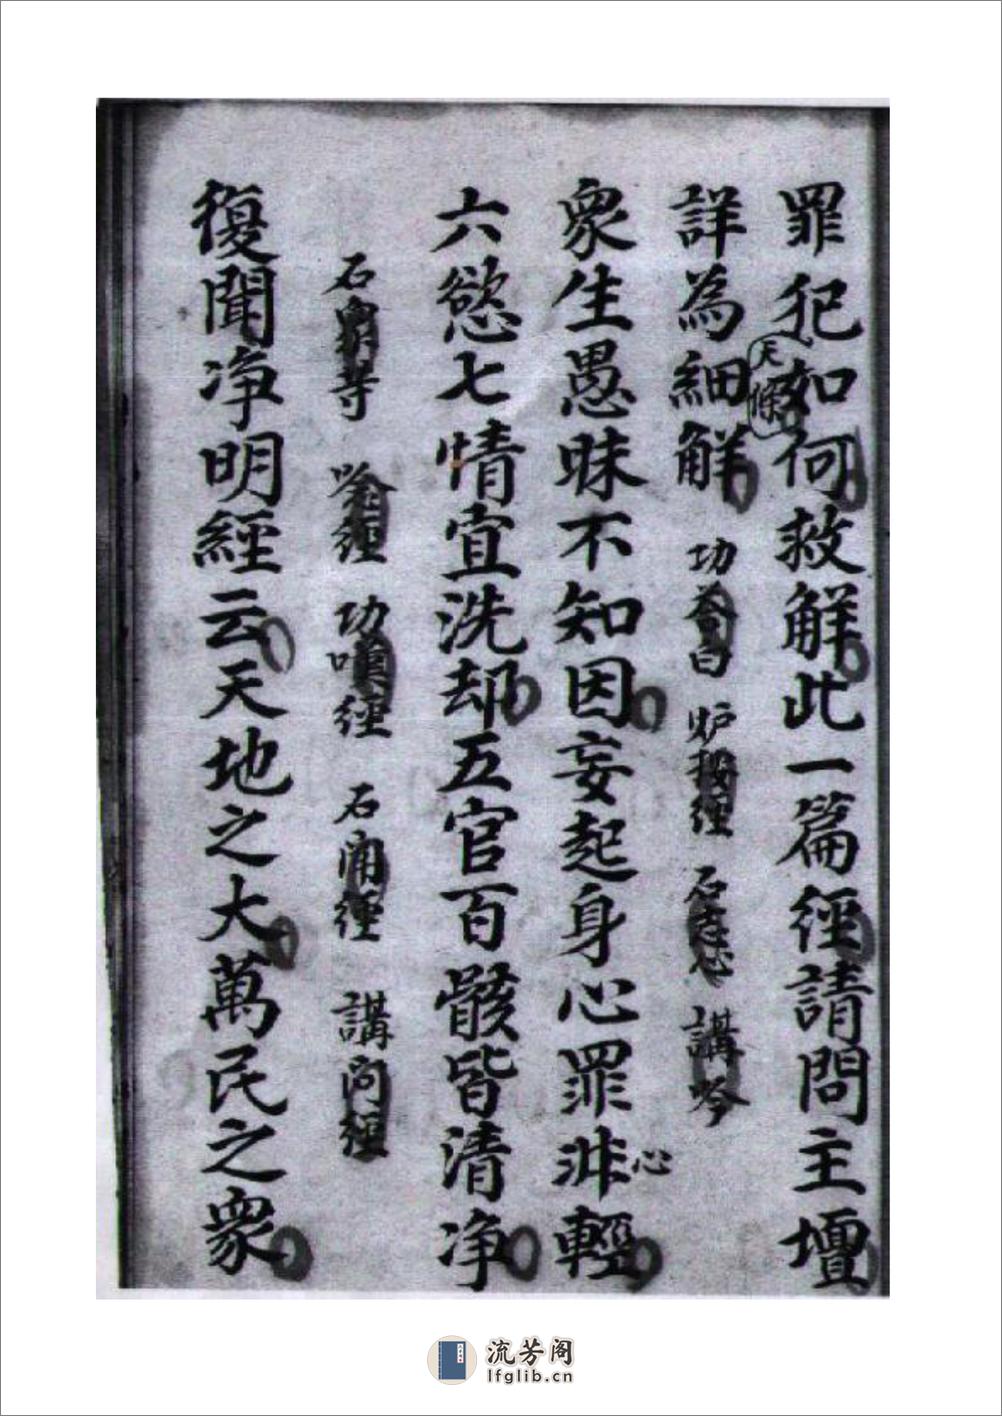 罪犯如何救解此一篇經請問主壇
天條
詳為細解 功 白 炉 經 石志心 講吟
衆生愚昧不知因妄起身心罪非輕
心
六慾七情宜洗却五官百骸皆清净
石 等 經 功嘆經 石 經 講問經
復聞净明經云天地之大萬民之衆
流芳阁
lfglib.cn